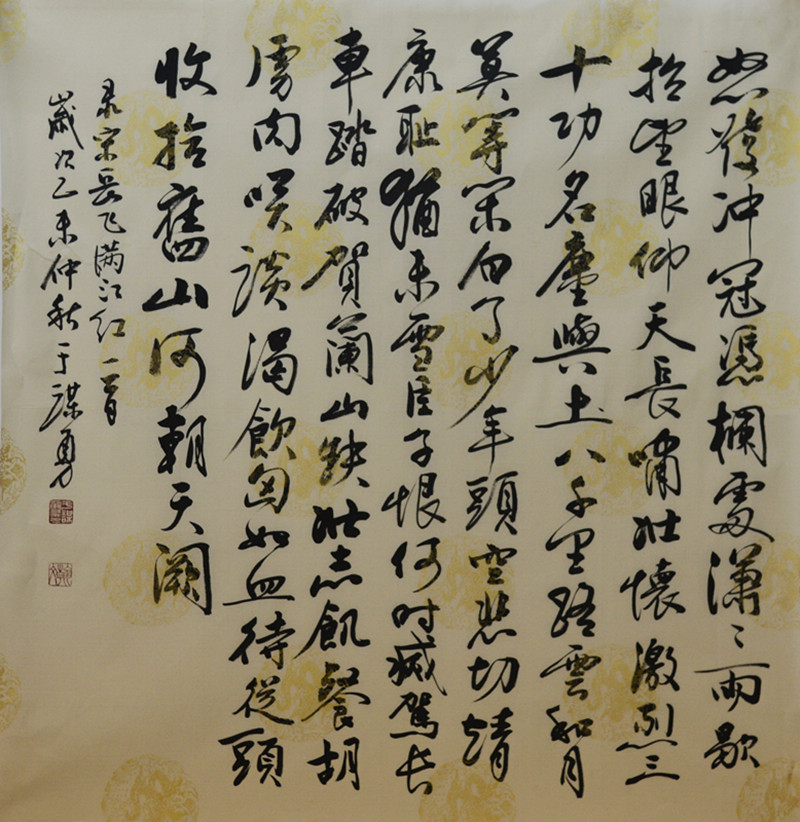 怒發冲冠憑欄處潇〻雨歇
抬望眼仰天長嘯壯懷激烈三
十功名塵與土八千里路雲和月
莫等闲白了少年頭空悲切靖
康耻猶未雪臣子恨何时滅駕长
車踏破賀蘭山缺壯志飢餐胡
虜肉笑談渴飲匈奴血待從頭
收拾舊山河朝天闕
录宋岳飞满江红一首
歲次乙未仲秋于謀勇